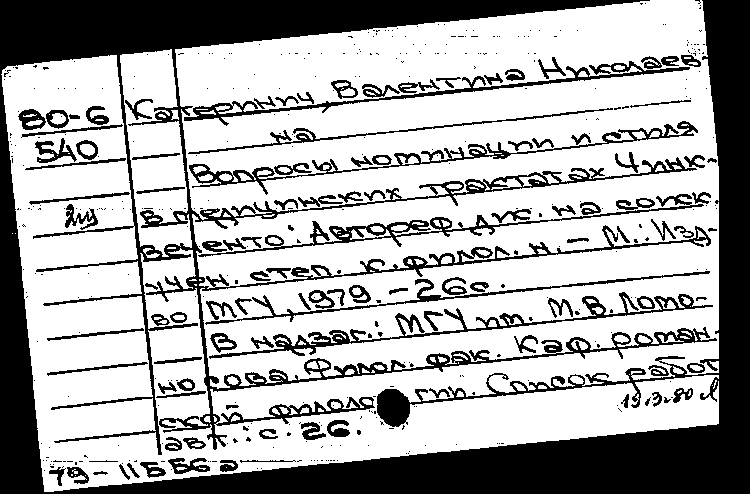 80-6 Катеринич, Валентина Николаев-
540 на
Вопросы номинации и стиля
2щ в медицинских трактатах Чинк-
веченто: Автореф. дис. на соиск.
учен. степ. к. филол. н. — М.: Изд-
во МГУ, 1979. - 26 с.
В надзаг.: МГУ им. М.В. Ломо-
носова. Филол. фак. Каф. роман.
ской филологии. Список работ
авт.: с. 26. 19.3.80
79-11556а